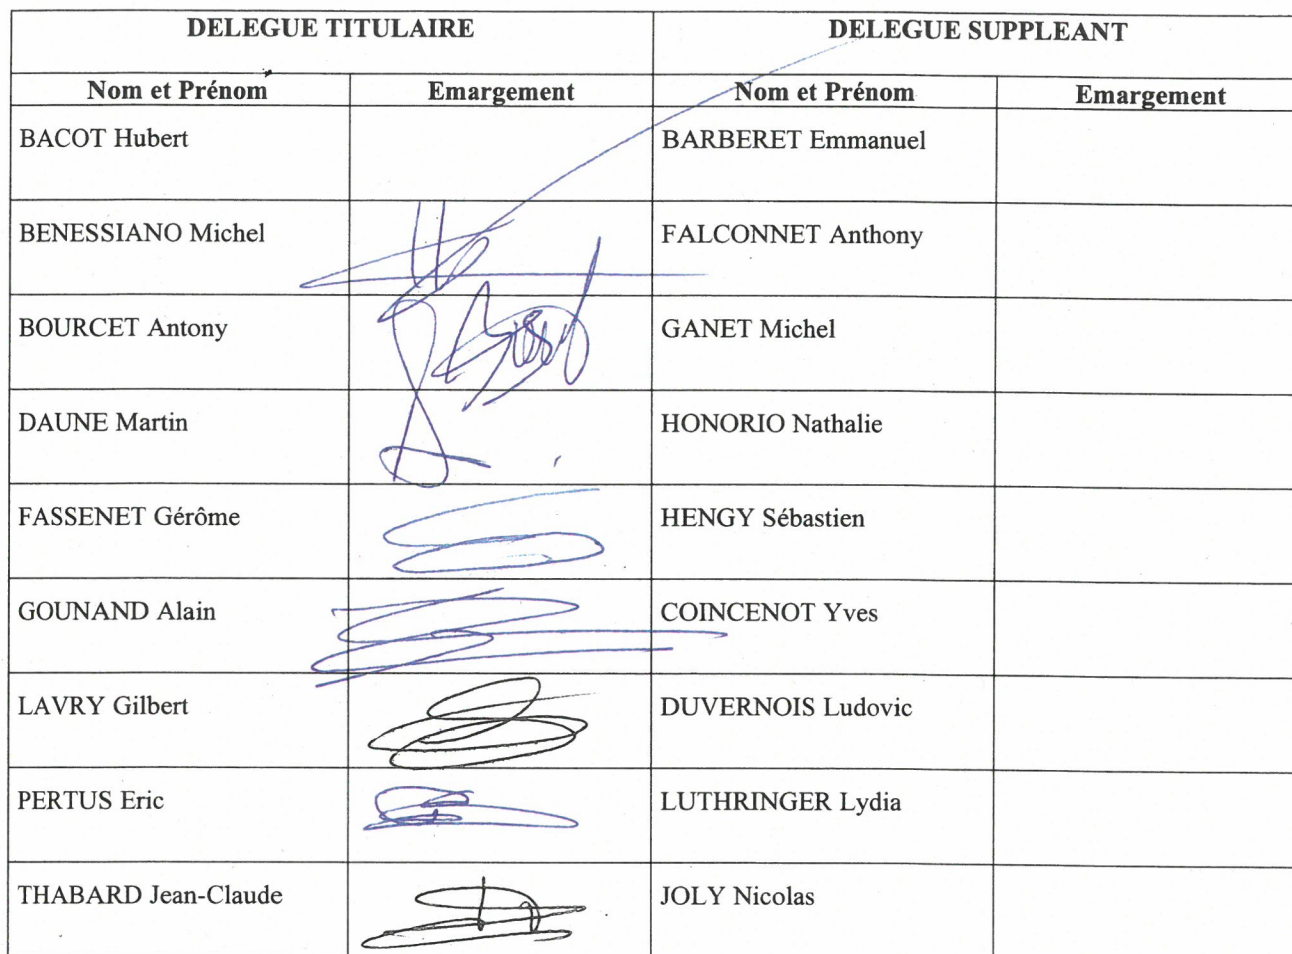 DELEGUE TITULAIRE DELEGUE SUPPLEANT
Nom et Prénom Emargement Nom et Prénom Emargement
BACOT Hubert BARBERET Emmanuel
BENESSIANO Michel FALCONNET Anthony
BOURCET Antony GANET Michel
DAUNE Martin HONORIO Nathalie
FASSENET Gérôme HENGY Sébastien
GOUNAND Alain COINCENOT Yves
LAVRY Gilbert DUVERNOIS Ludovic
PERTUS Eric LUTHRINGER Lydia
THABARD Jean-Claude JOLY Nicolas